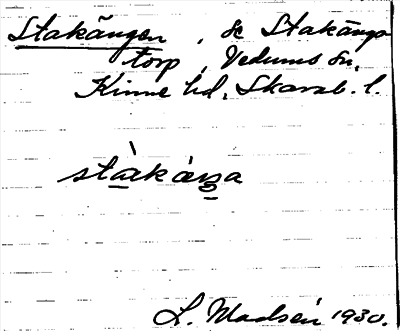 Stakängen, se Stakängs-
torp, Vedums sn,
Kinne hd, Skarab. l.
L. Madsén 1930.